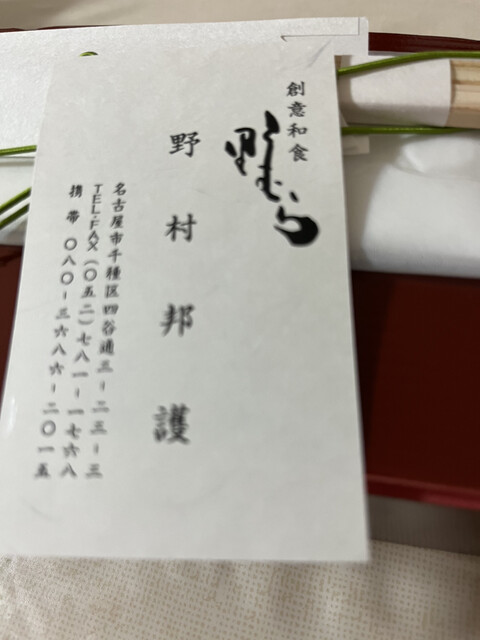 創意和食
野むら
野村邦護
名古屋市千種区四谷通三ー二三ー三
TEL・FAX(〇五二)七八一ー一七六八
携帯 〇八〇ー三六八六ー二〇一五